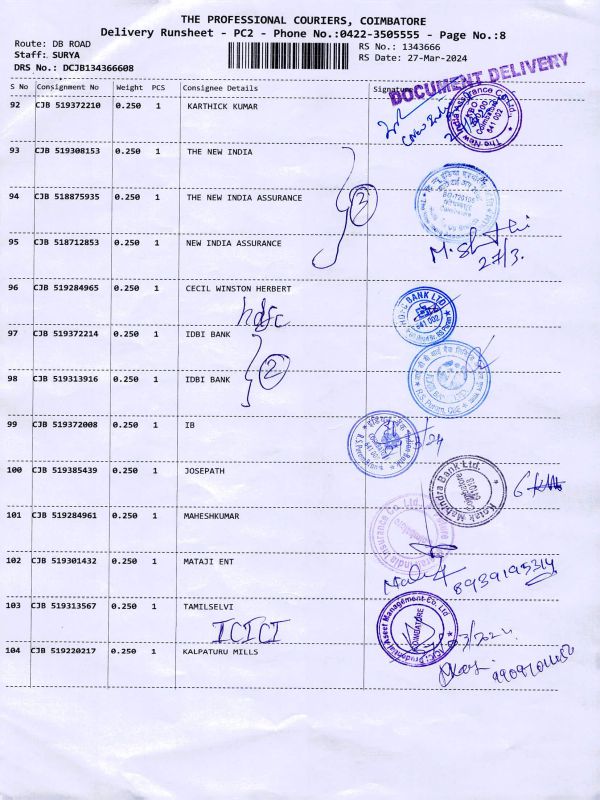 THE PROFESSIONAL COURIERS, COIMBATORE
Delivery Runsheet - PC2 - Phone No.:0422-3505555 - Page No.:8
Route: DB ROAD
RS No.: 1343666
Staff: SURYA
RS Date: 27-Mar-2024
DRS No.: DCJB134366608
DOCUMENT DELIVERY
S No Consignment No Weight PCS Consignee Details Signature
92 CJB 519372210 0.250 1 KARTHICK KUMAR
The New India Assurance Co.Ltd. Coimbatore 641 002
93 CJB 519308153 0.250 1 THE NEW INDIA
94 CJB 518875935 0.250 1 THE NEW INDIA ASSURANCE
3
95 CJB 518712853 0.250 1 NEW INDIA ASSURANCE
27/3.
96 CJB 519284965 0.250 1 CECIL WINSTON HERBERT
hdfc
HDFC BANK LTD 641 002
97 CJB 519372214 0.250 1 IDBI BANK
2
98 CJB 519313916 0.250 1 IDBI BANK
99 CJB 519372008 0.250 1 IB
100 CJB 519385439 0.250 1 JOSEPATH
Kotak Mahindra Bank Ltd.
101 CJB 519284961 0.250 1 MAHESHKUMAR
102 CJB 519301432 0.250 1 MATAJI ENT
8939195314
103 CJB 519313567 0.250 1 TAMILSELVI
ICICI
ICICI Prudential Asset Management Co. Ltd COIMBATORE
104 CJB 519220217 0.250 1 KALPATURU MILLS